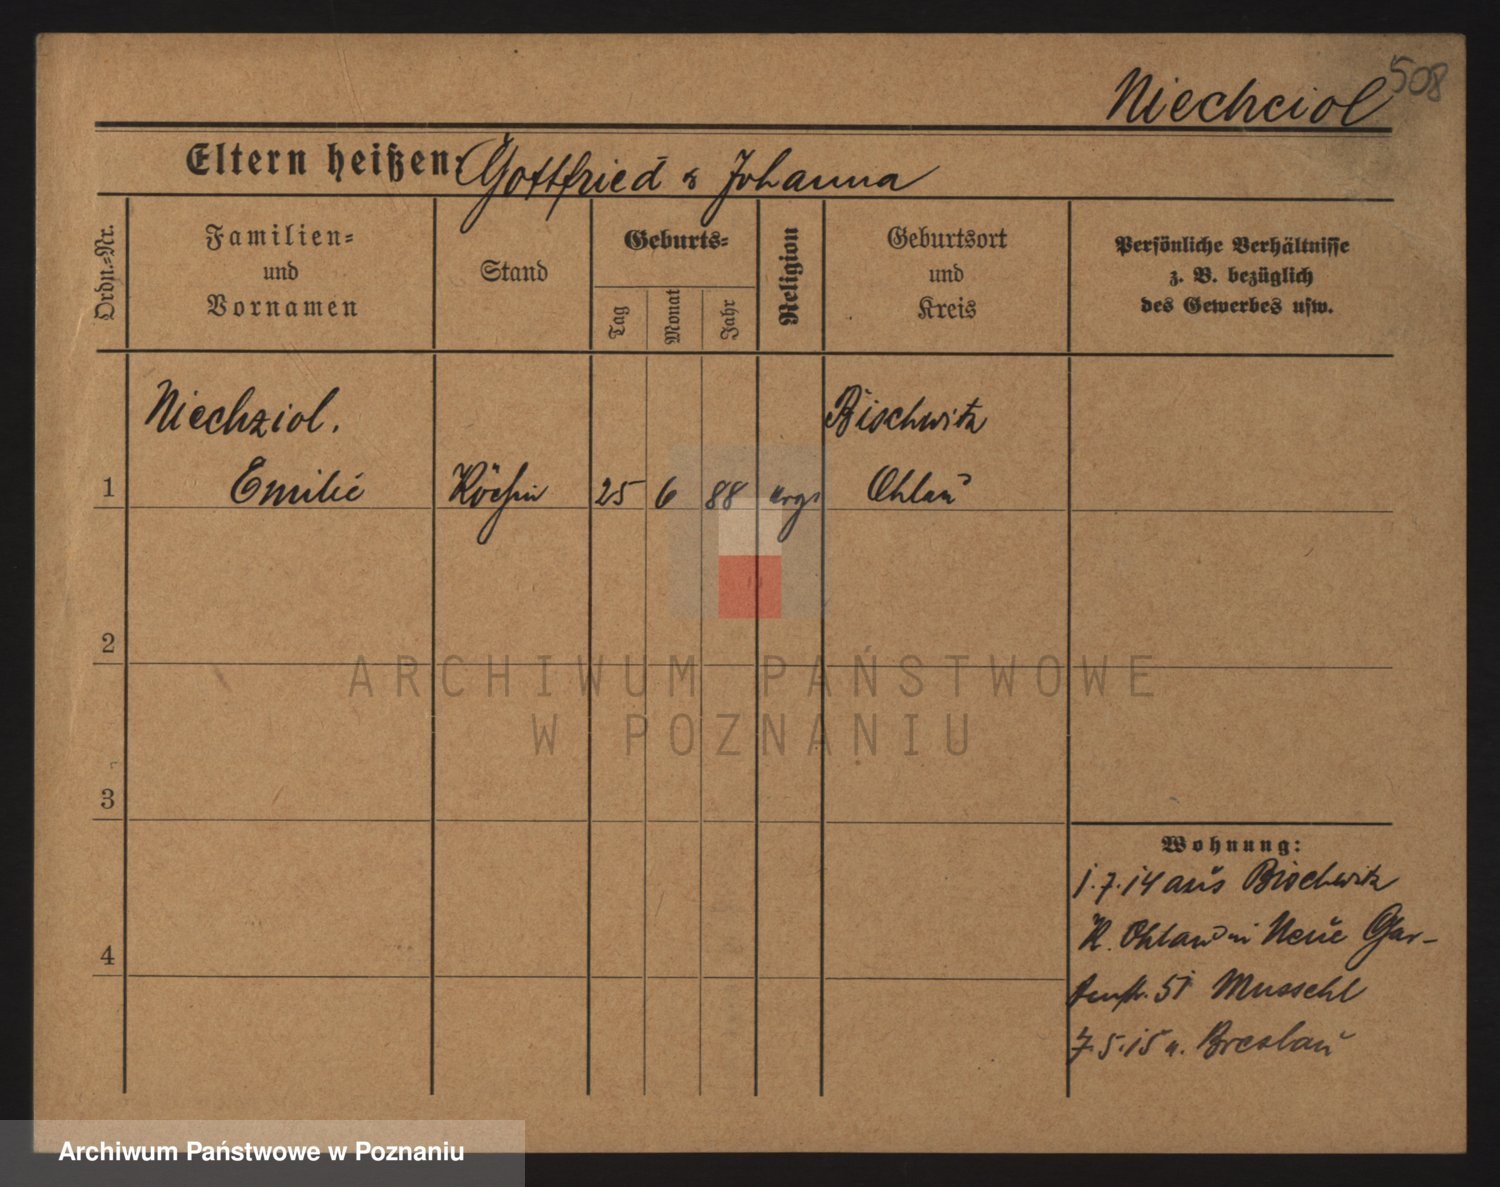 508
Niechciol
Eltern heißen: Gottfried & Johanna
Ordn.=Nr.
Familien=
und
Vornamen
Stand
Geburts=
Tag
Monat
Jahr
Religion
Geburtsort
und
Kreis
Persönliche Verhältnisse
z. B. bezüglich
des Gewerbes usw.
Niechziol.
Bischwitz
1 Emilie Köchin 25 6 88 Ohlau
2
3
4
Wohnung:
1.7.14 aus Bischwitz
K. Ohlau in Neue Gar-
tenstr. 51 Musschl
7.5.15 n. Breslau
ARCHIWUM PAŃSTWOWE
W POZNANIU
Archiwum Państwowe w Poznaniu